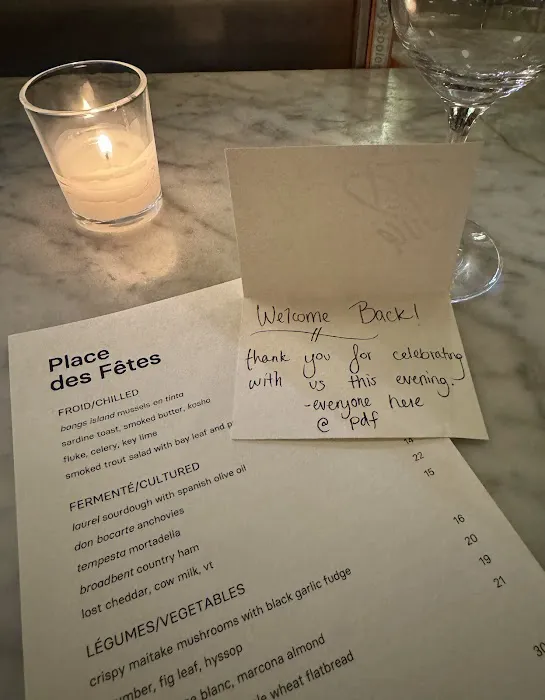 Welcome Back!
thank you for celebrating
with us this evening.
-everyone here
@ pdf
Place
des Fêtes
FROID/CHILLED
bangs island mussels en tinto
sardine toast, smoked butter, kosho
fluke, celery, key lime
smoked trout salad with bay leaf and
FERMENTÉ/CULTURED
laurel sourdough with spanish olive oil 14
don bocarte anchovies 22
tempesta mortadella 15
broadbent country ham
lost cheddar, cow milk, vt
LÉGUMES/VEGETABLES
crispy maitake mushrooms with black garlic fudge 16
fig leaf, hyssop 20
blanc, marcona almond 19
wheat flatbread 21
30